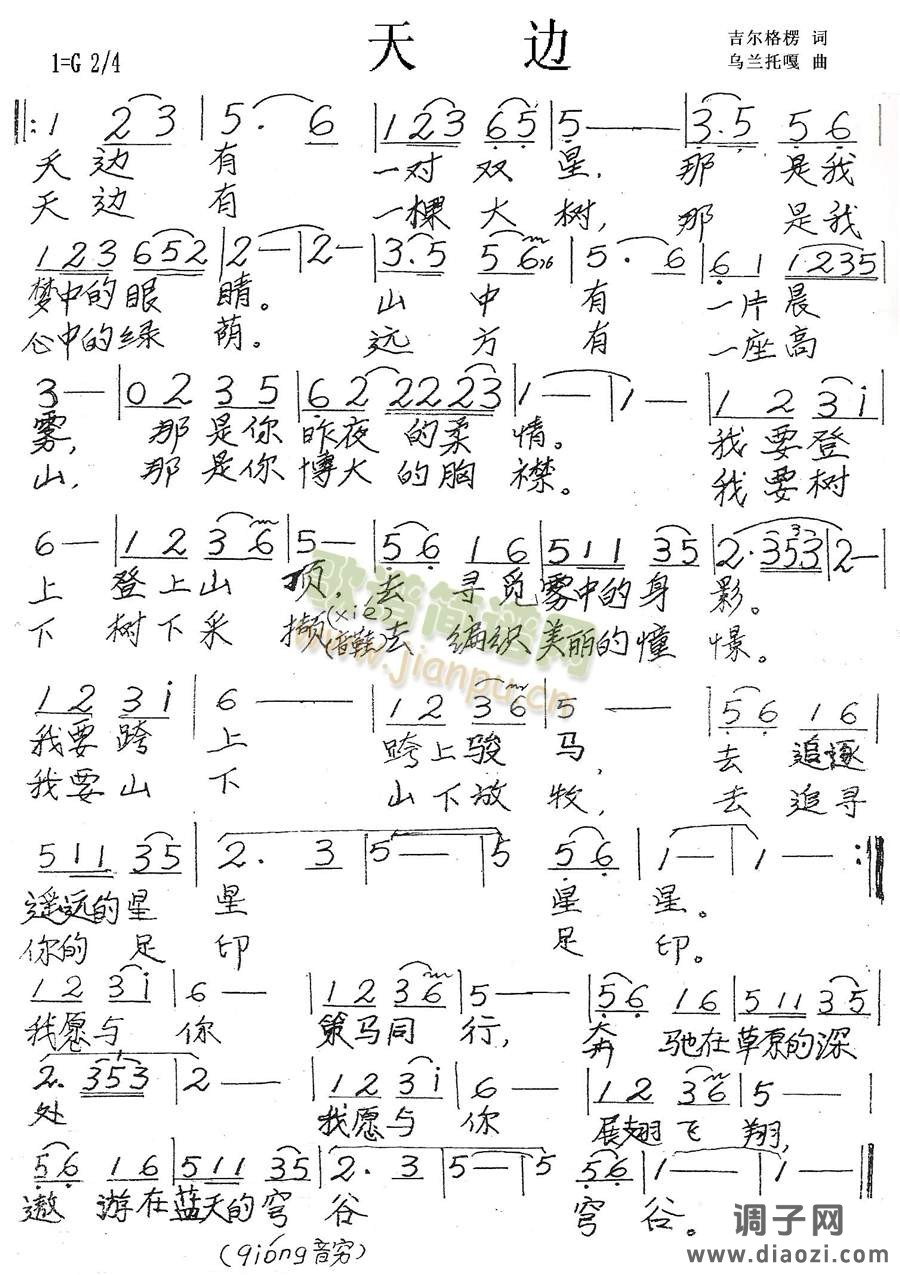 天 边
吉尔格楞 词
1=G 2/4
乌兰托嘎 曲
1 2 3 | 5 . 6 | 1 2 3 6 5 | 5 — — | 3 . 5 5 6
天边 有 一对 双 星, 那 是我
天边 有 一棵 大 树, 那 是我
1 2 3 6 5 2 | 2 — | 2 — | 3 . 5 5 6 | 5 . 6 | 6 1 1 2 3 5
梦中的眼 睛。 山 中 有 一片晨
心中的绿 荫。 远 方 有 一座高
3 — | 0 2 3 5 | 6 2 2 2 2 3 | 1 — | 1 — | 1 2 3 i
雾, 那是你昨夜的柔 情。 我要登
山, 那是你博大的胸 襟。 我要树
6 — | 1 2 3 6 | 5 — | 5 6 1 6 | 5 1 1 3 5 | 2 . 3 5 3 | 2 —
上 登上山 顶, 去 寻觅雾中的身 影。
下 树下采 撷(xié)(音鞋)去 编织美丽的憧 憬。
1 2 3 i | 6 — — | 1 2 3 6 | 5 — — | 5 6 1 6
我要跨 上 跨上骏 马, 去 追逐
我要山 下 山下放 牧, 去 追寻
5 1 1 3 5 | 2 . 3 | 5 — | 5 5 6 | 1 — | 1 — :‖
遥远的星 星 星 星。
你的 足 印 足 印。
1 2 3 i | 6 — | 1 2 3 6 | 5 — — | 5 6 1 6 | 5 1 1 3 5
我愿与 你 策马同 行, 奔 驰在草原的深
2 . 3 5 3 | 2 — — | 1 2 3 i | 6 — — | 1 2 3 6 | 5 — —
处 我愿与 你 展翅飞 翔,
5 6 1 6 | 5 1 1 3 5 | 2 . 3 | 5 — | 5 5 6 | 1 — | 1 — ‖
遨 游在蓝天的穹 谷 穹 谷。
(qióng音穷)
歌谱简谱网
www.jianpu.cn
调子网
www.diaozi.com